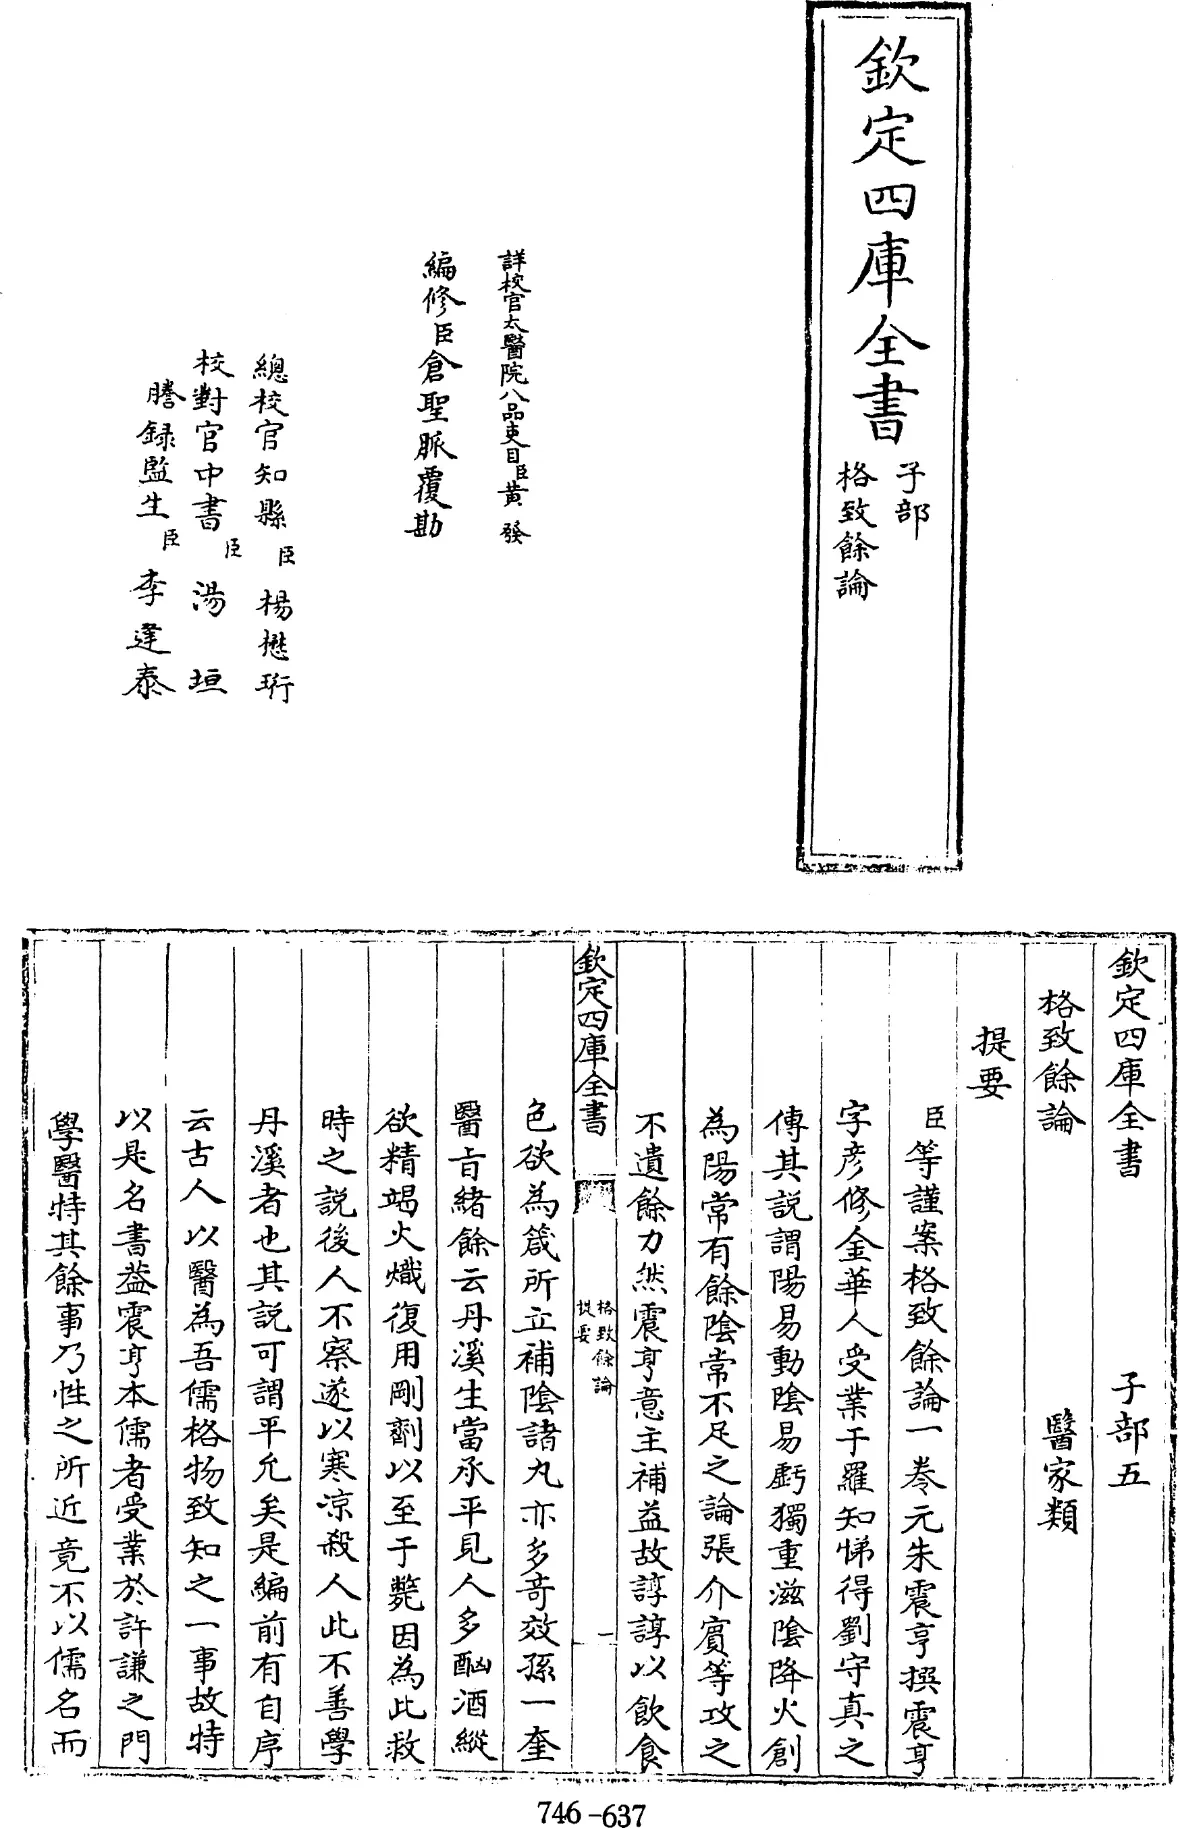 欽定四庫全書
子部
格致餘論
詳校官太醫院八品吏目臣黃發
編修臣倉聖脈覆勘
總校官知縣臣楊懋珩
校對官中書臣湯垣
謄録監生臣李達泰
欽定四庫全書 子部五
格致餘論 醫家類
提要
臣等謹案格致餘論一卷元朱震亨撰震亨
字彥修金華人受業于羅知悌得劉守真之
傳其説謂陽易動陰易虧獨重滋陰降火創
為陽常有餘陰常不足之論張介賓等攻之
不遺餘力然震亨意主補益故諄諄以飲食
欽定四庫全書
格致餘論
提要
一
色欲為箴所立補陰諸丸亦多竒效孫一奎
醫旨緒餘云丹溪生當承平見人多酗酒縱
欲精竭火熾復用剛劑以至于斃因為此救
時之説後人不察遂以寒凉殺人此不善學
丹溪者也其説可謂平允矣是編前有自序
云古人以醫為吾儒格物致知之一事故特
以是名書葢震亨本儒者受業於許謙之門
學醫特其餘事乃性之所近竟不以儒名而
746-637